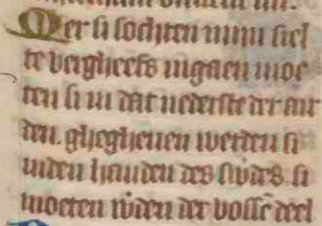 Mer si sochten mijn siel
te vergheefs ingaen moe
ten si in dat nederste der aer
den. ghegheuen werden si
inden handen des swdes. si
moeten wden der vosse deel